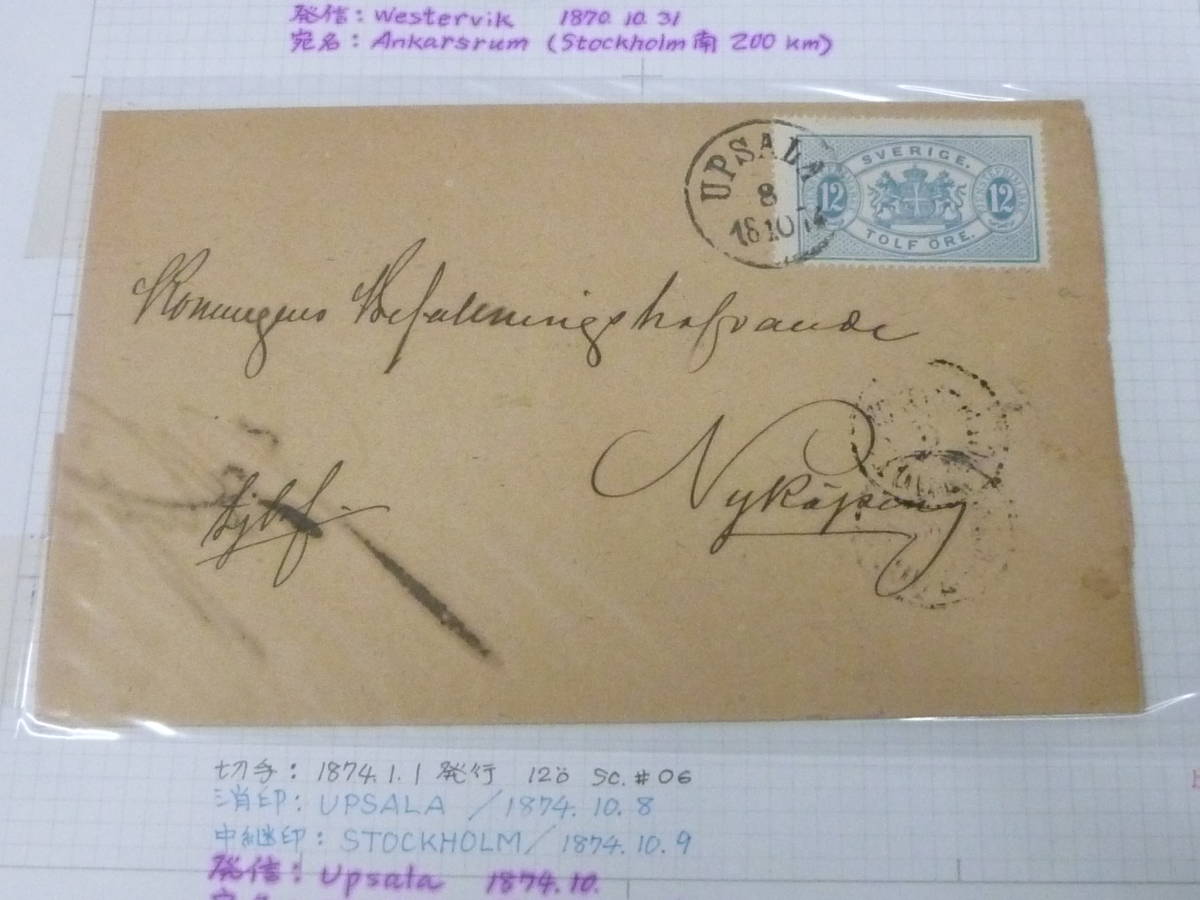 発信: Westervik 1870.10.31
宛名: Ankarsrum (Stockholm南 200km)
UPSALA
8
18 10 74
SVERIGE.
12 12
TOLF ÖRE.
Konungens Befallningshafvande
Nyköping
Tjbf.
切手: 1874.1.1 発行 12ö SC.#O6
消印: UPSALA / 1874.10.8
中継印: STOCKHOLM / 1874.10.9
発信: Upsala 1874.10.